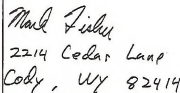 Mark Fisher
2214 Cedar Lane
Cody, WY 82414